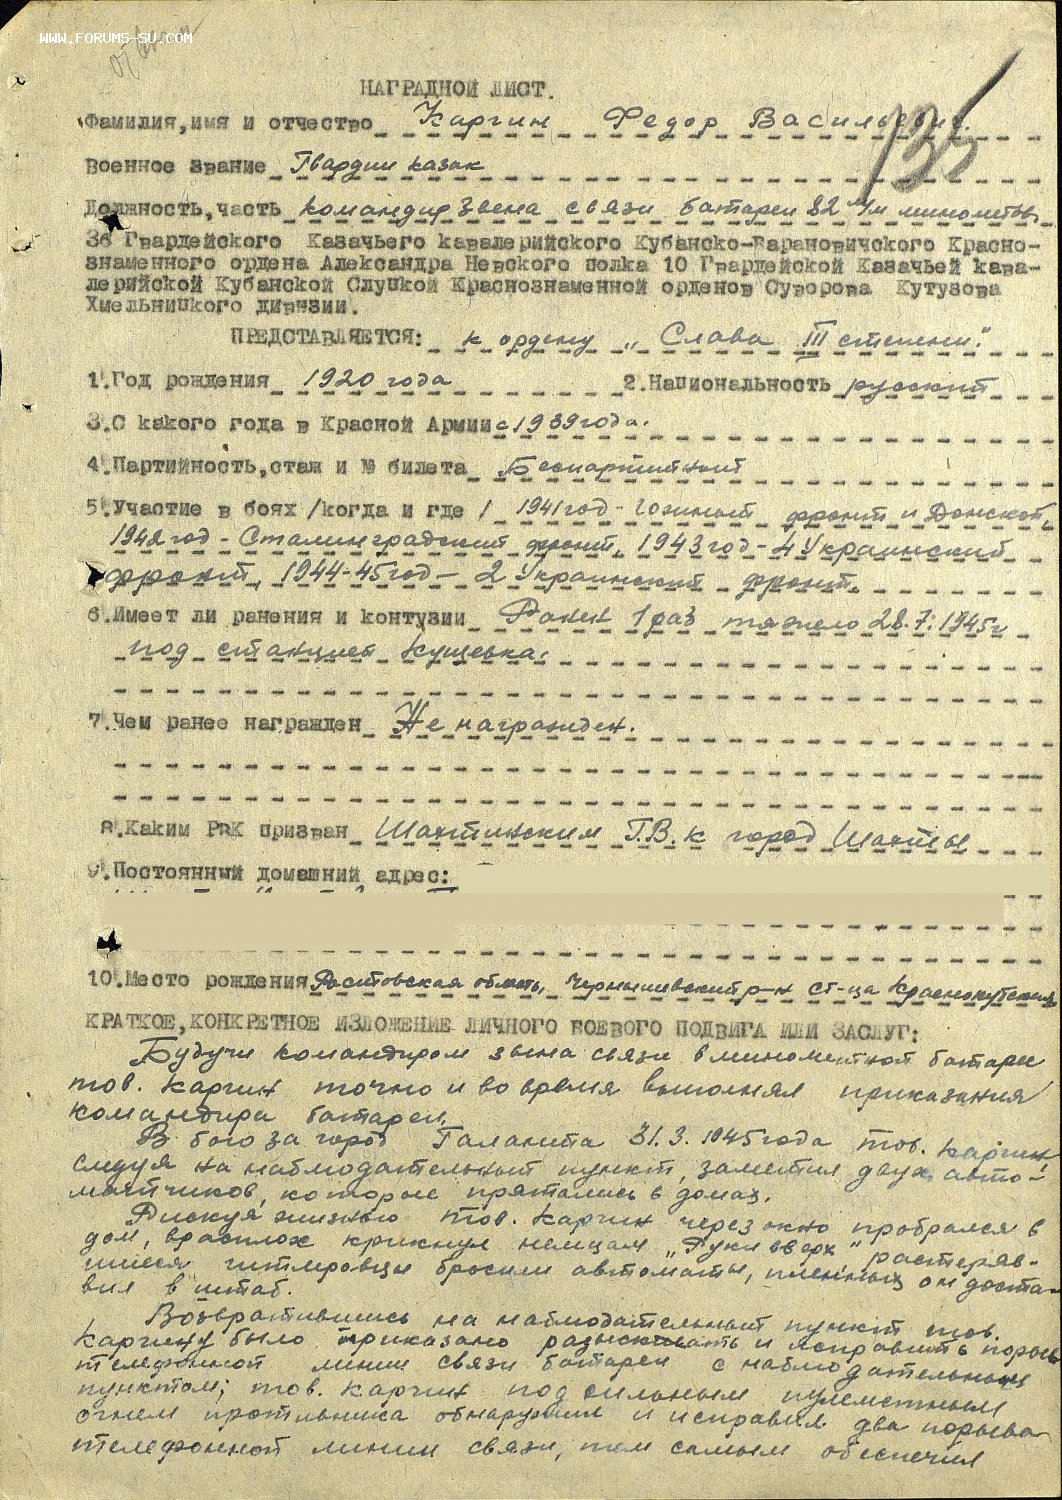 WWW.FORUMS-SU.COM
135
НАГРАДНОЙ ЛИСТ.
Фамилия,имя и отчество Каргин Федор Васильевич.
Военное звание Гвардии казак
Должность,часть командир звена связи батареи 82 м/м минометов
36 Гвардейского Казачьего кавалерийского Кубанско-Барановичского Красно-
знаменного ордена Александра Невского полка 10 Гвардейской Казачьей кава-
лерийской Кубанской Слуцкой Краснознаменной орденов Суворова Кутузова
Хмельницкого дивизии.
ПРЕДСТАВЛЯЕТСЯ: к ордену „Слава III степени."
1.Год рождения 1920 года 2.Национальность русский
3.С какого года в Красной Армии с 1939 года.
4.Партийность,стаж и № билета Беспартийный
5.Участие в боях /когда и где/ 1941 год - Южный фронт и Донской,
1942 год - Сталинградский фронт, 1943 год - 4 Украинский
фронт, 1944-45 год - 2 Украинский фронт.
6.Имеет ли ранения и контузии Ранен 1 раз тяжело 28.7.1945г
под станцией Кущевка.
7.Чем ранее награжден Не награжден.
8.Каким РВК призван Шахтинским Г.В.к город Шахты
9.Постоянный домашний адрес:
10.Место рождения Ростовская область, Чернышевский р-н ст-ца Краснокутская
КРАТКОЕ,КОНКРЕТНОЕ ИЗЛОЖЕНИЕ ЛИЧНОГО БОЕВОГО ПОДВИГА ИЛИ ЗАСЛУГ:
Будучи командиром звена связи в минометной батареи
тов. Каргин точно и во время выполнял приказания
командира батареи.
В бою за город Галанта 31.3.1945 года тов. Каргин,
следуя на наблюдательный пункт, заметил двух авто-
матчиков, которые прятались в домах.
Рискуя жизнью тов. Каргин через окно пробрался в
дом, врасплох крикнул немцам „Руки вверх" растеряв-
шиеся гитлеровцы бросили автоматы, пленных он доста-
вил в штаб.
Возвратившись на наблюдательный пункт тов.
Каргину было приказано разыскивать и исправить порыв
телефонной линии связи батареи с наблюдательным
пунктом; тов. Каргин под сильным пулеметным
огнем противника обнаружил и исправил два порыва
телефонной линии связи, тем самым обеспечил